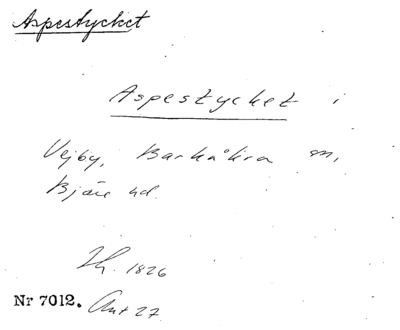 Aspestycket
Aspestycket i
Vejby, Barkåkra sn,
Bjäre hd.
Lh. 1826
Nr 7012. Akt 27